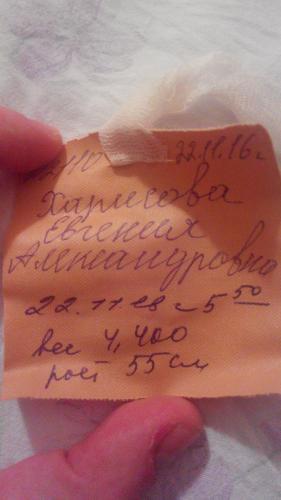 22.11.16г
Харисова
Евгения
Александровна
22.11 5 50
вес 4,400
рост 55 см